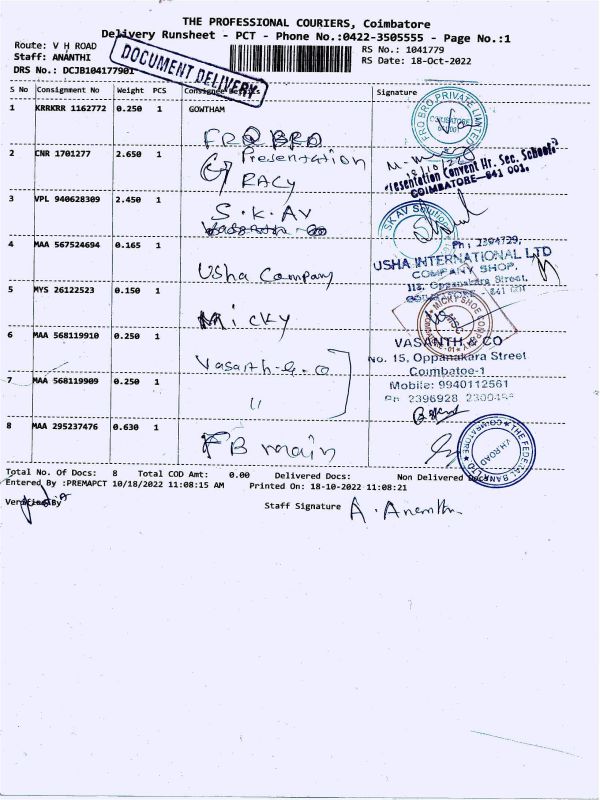 THE PROFESSIONAL COURIERS, Coimbatore
Delivery Runsheet - PCT - Phone No.:0422-3505555 - Page No.:1
Route: V H ROAD
RS No.: 1041779
Staff: ANANTHI
RS Date: 18-Oct-2022
DRS No.: DCJB104177901
DOCUMENT DELIVERY
S No Consignment No Weight PCS Consignee Details Signature
1 KRRKRR 1162772 0.250 1 GOWTHAM
FRO BRO
FRO BRO PRIVATE LIMITED
COIMBATORE
2 CNR 1701277 2.650 1 Presentation
G RACY
18/10/22
Presentation Convent Hr. Sec. School
COIMBATORE-641 001.
3 VPL 940628309 2.450 1 S.K. AV
SK AV Solutions
4 MAA 567524694 0.165 1
Usha Company
Ph: 2394729,
USHA INTERNATIONAL LTD
COMPANY SHOP,
118, Oppanakara Street,
5 MYS 26122523 0.150 1
Micky
MICKY SHOE COMPANY
MSC
6 MAA 568119910 0.250 1 Vasanth & Co
VASANTH & CO
No. 15, Oppanakara Street
Coimbatoe-1
7 MAA 568119909 0.250 1 "
Mobile: 9940112561
8 MAA 295237476 0.630 1
FB main
THE FEDERAL BANK LTD
VH ROAD
COIMBATORE
Total No. Of Docs: 8 Total COD Amt: 0.00 Delivered Docs: Non Delivered Docs:
Entered By :PREMAPCT 10/18/2022 11:08:15 AM Printed On: 18-10-2022 11:08:21
Verified By
Staff Signature A. Ananthi